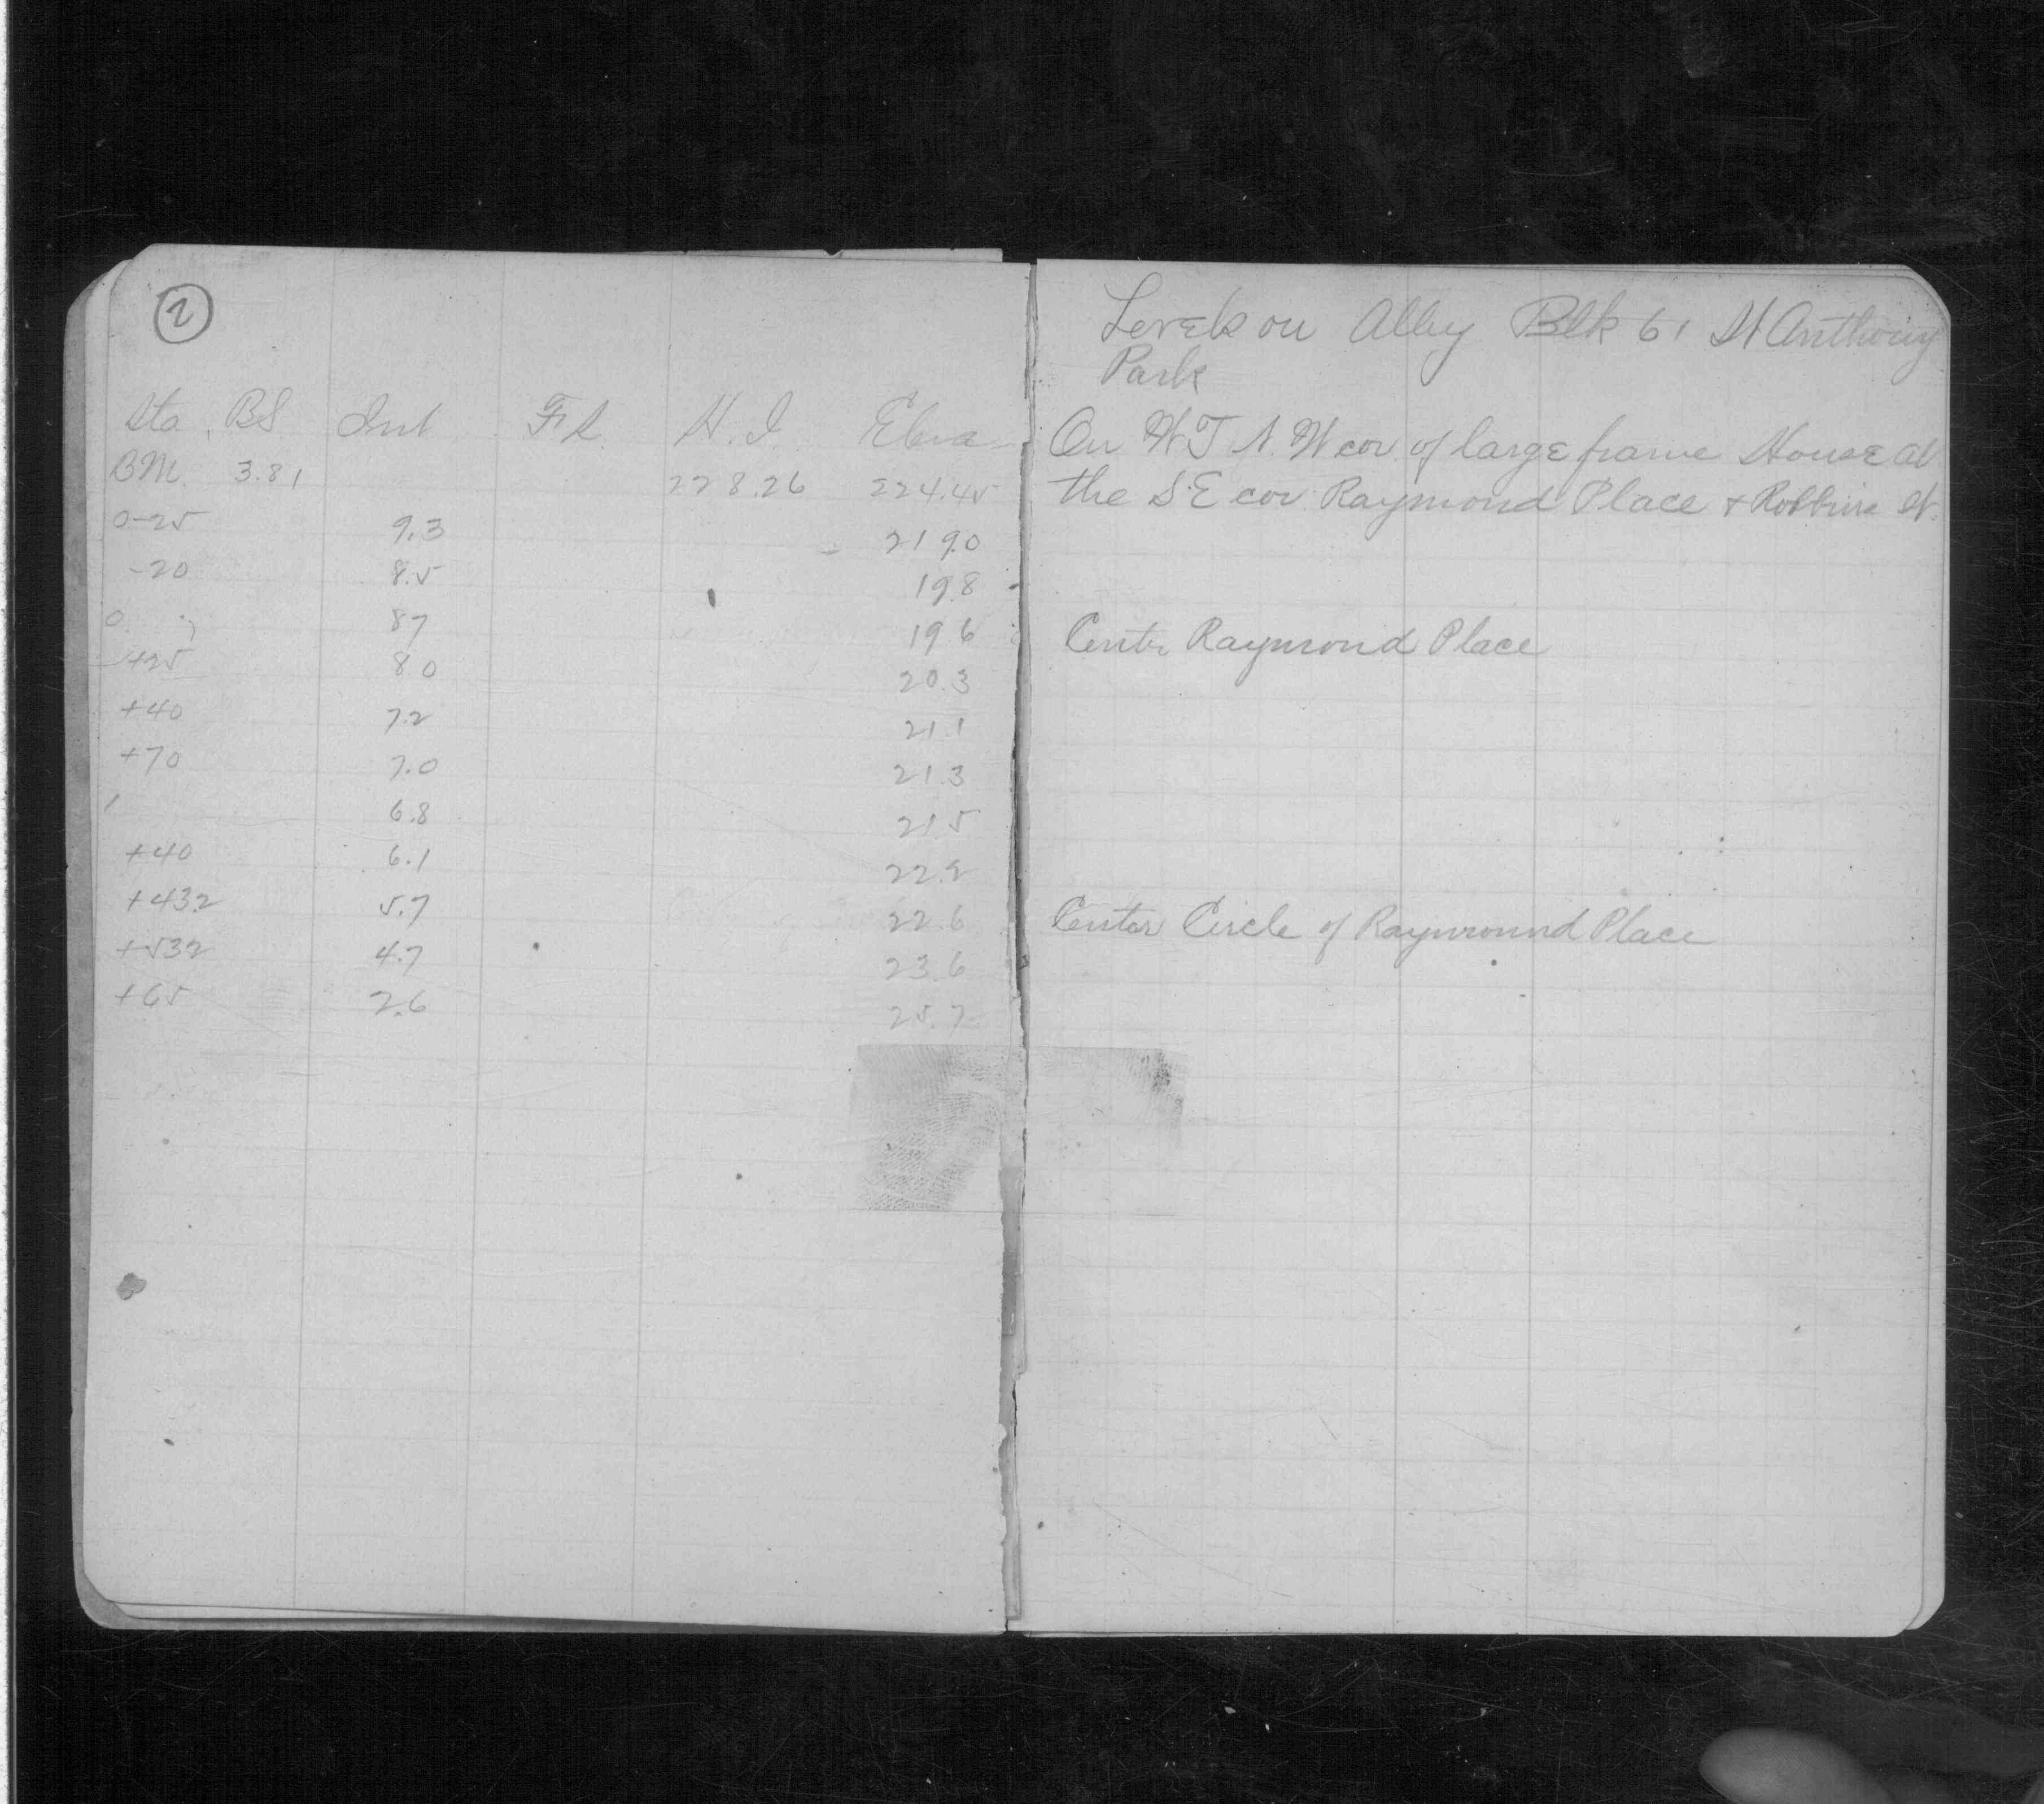 2
Levels on Alley Blk 61 St Anthony
Park
Sta. BS Int F.S. H.I Eleva
On W.T N.W cor. of large frame House at
BM. 3.81 228.26 224.45
the S.E cor. Raymond Place + Robbins St.
0-25 9.3 219.0
-20 8.5 19.8
0 8.7 19.6 Center Raymond Place
+25 8.0 20.3
+40 7.2 21.1
+70 7.0 21.3
1 6.8 21.5
+40 6.1 22.2
+43.2 5.7 22.6 Center Circle of Raymound Place
+53.2 4.7 23.6
+65 2.6 25.7